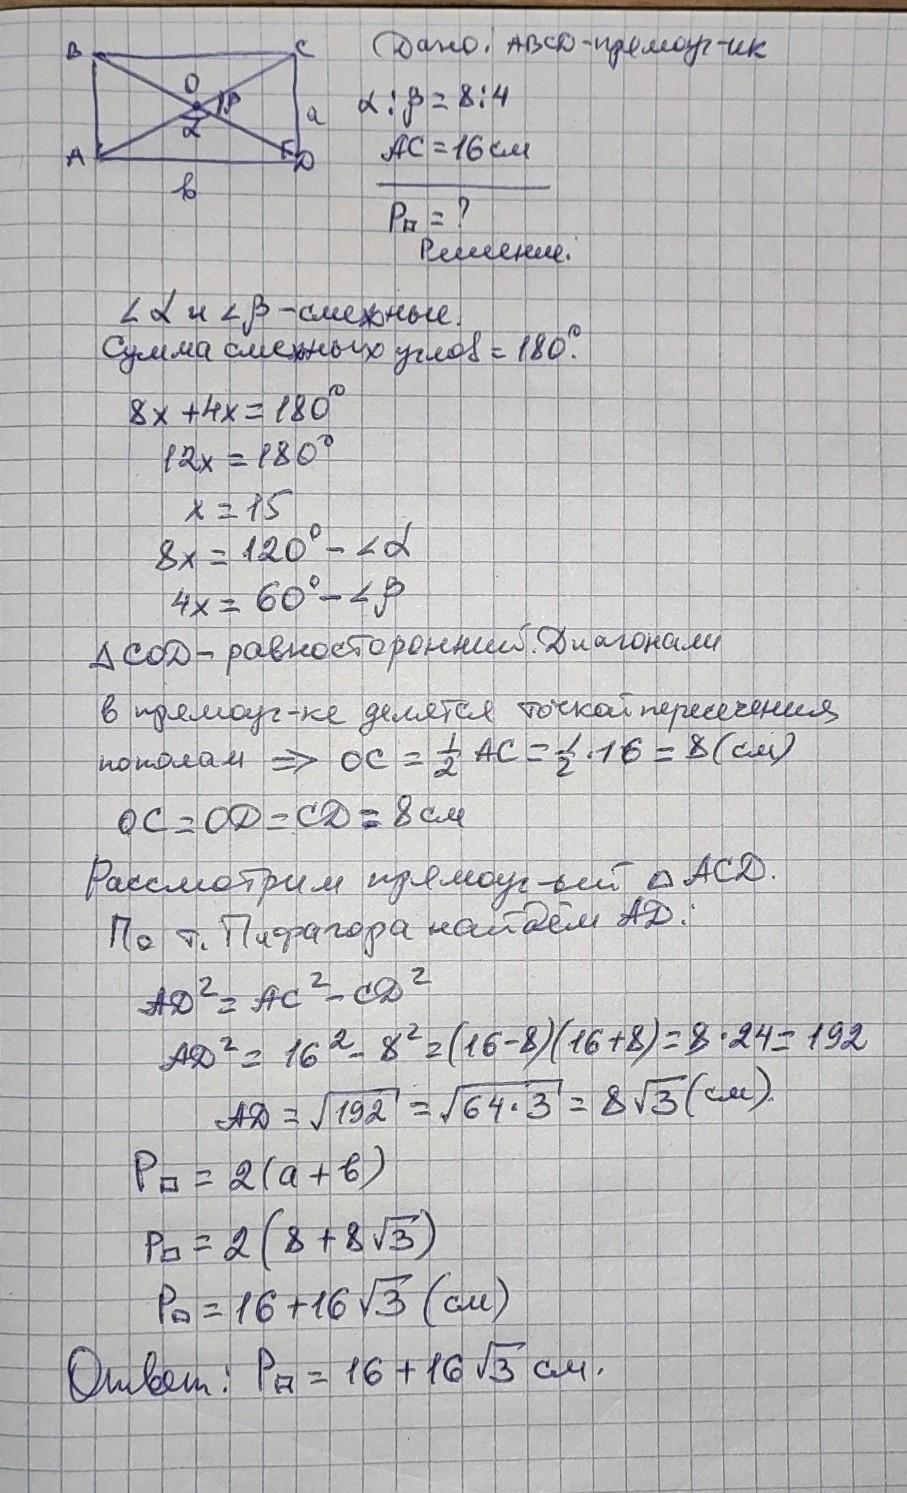 B
C
Дано: ABCD-прямоуг-ик
O
β
a
α
α:β=8:4
A
D
AC=16см
b
P▱=?
Решение:
∠α и ∠β-смежные.
Сумма смежных углов=180°.
8x+4x=180°
12x=180°
x=15
8x=120°-∠α
4x=60°-∠β
ΔCOD-равносторонний. Диагонали
в прямоуг-ке делятся точкой пересечения
пополам ⇒ OC=1/2 AC=1/2·16=8(см)
OC=OD=CD=8см
Рассмотрим прямоуг-ый ΔACD.
По т. Пифагора найдём AD:
AD²=AC²-CD²
AD²=16²-8²=(16-8)(16+8)=8·24=192
AD=√192=√64·3=8√3(см).
P▱=2(a+b)
P▱=2(8+8√3)
P▱=16+16√3(см)
Ответ: P▱=16+16√3 см.